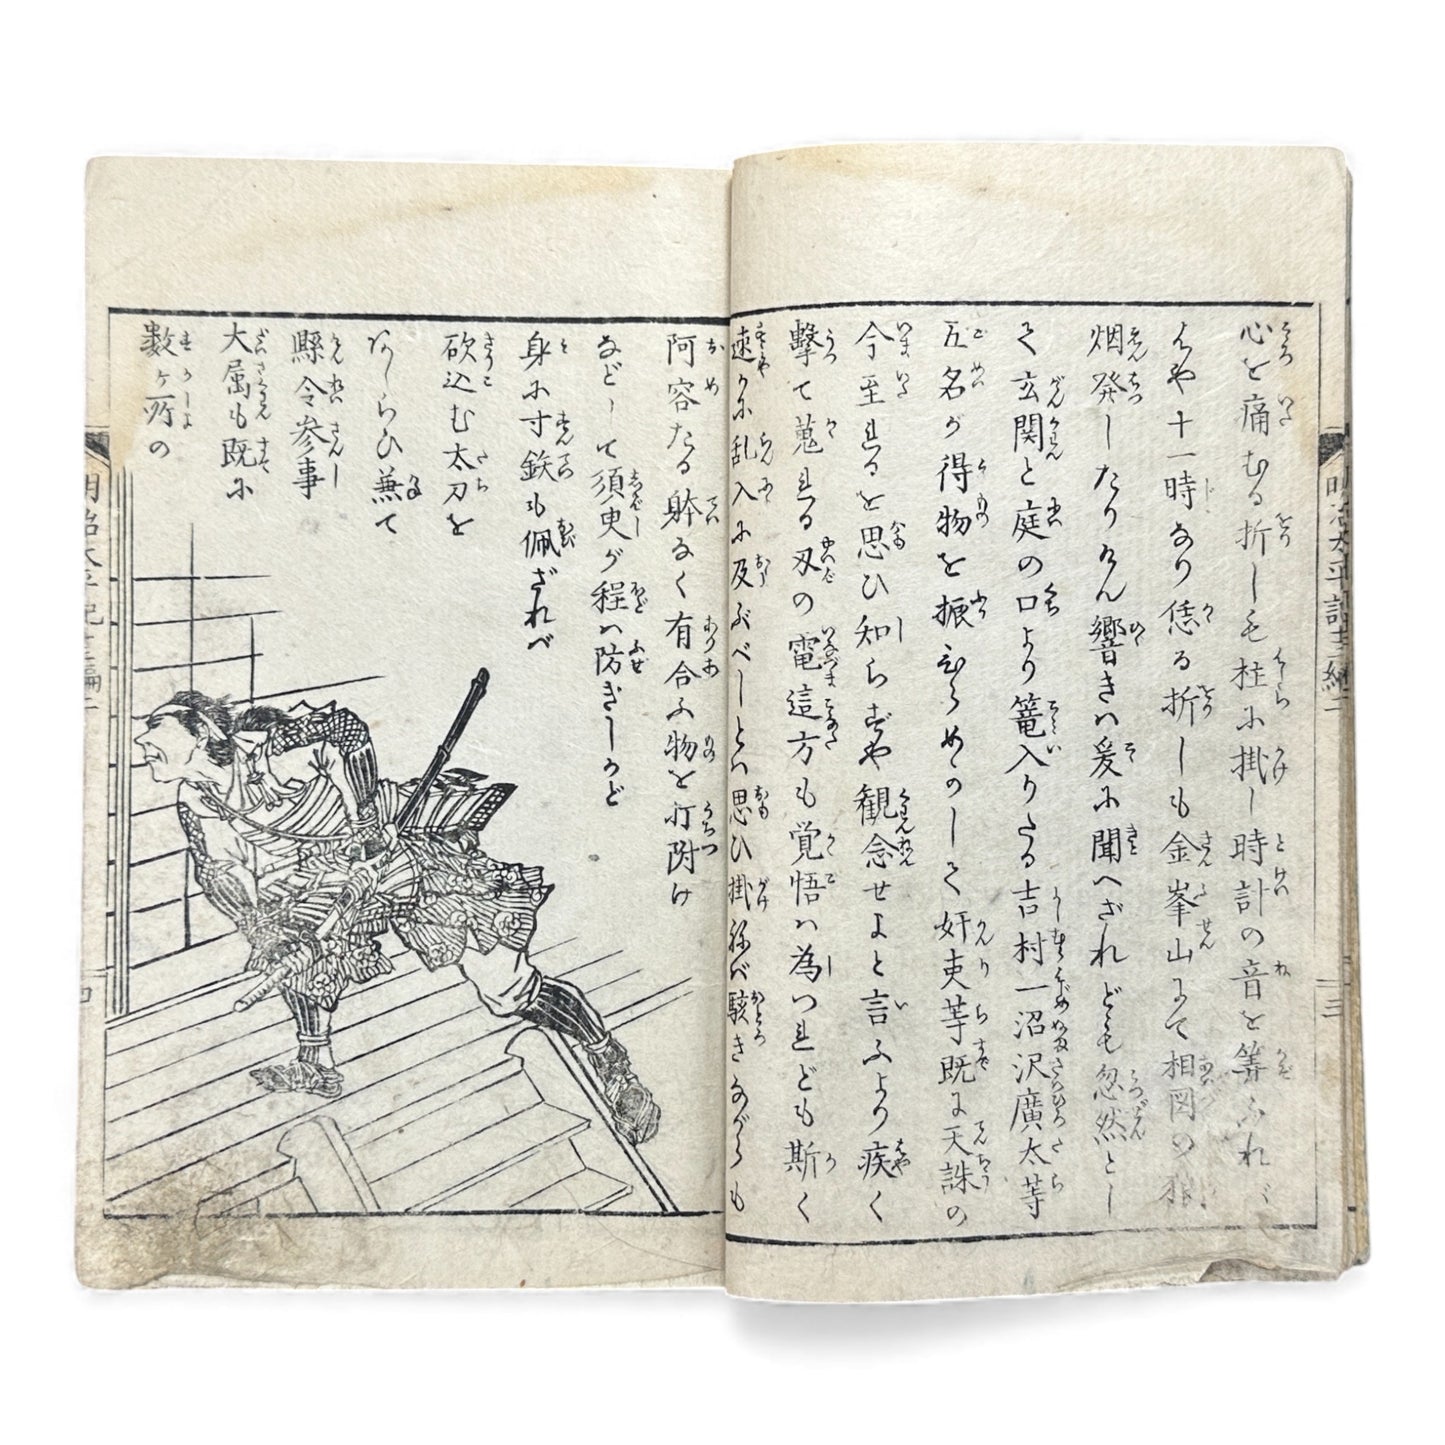 心を痛むる折しも柱に掛し時計の音を算ふれバ
はや十一時なり恁る折しも金峯山にて相図の狼
烟発したりけん響きハ爰に聞へざれども忽然とし
て玄関と庭の口より籠入りたる吉村一沼沢廣太等
五名が得物を振ひらめかして奸吏等既に天誅の
今至れるを思ひ知らずや観念せよと言ふより疾く
撃て蒐れる刃の電這方も覚悟ハ為つれども斯く
速かに乱入に及ぶべしとハ思ひ掛ねバ駭きながらも
阿容たる躰なく有合ふ物を打附け
などして須臾が程ハ防ぎしかど
身に寸鉄も佩ざれべ
砍込む太刀を
あしらひ兼て
縣令参事
大属も既に
数ヶ所の
明治太平記十三編二
三
明治太平記十三編二
四